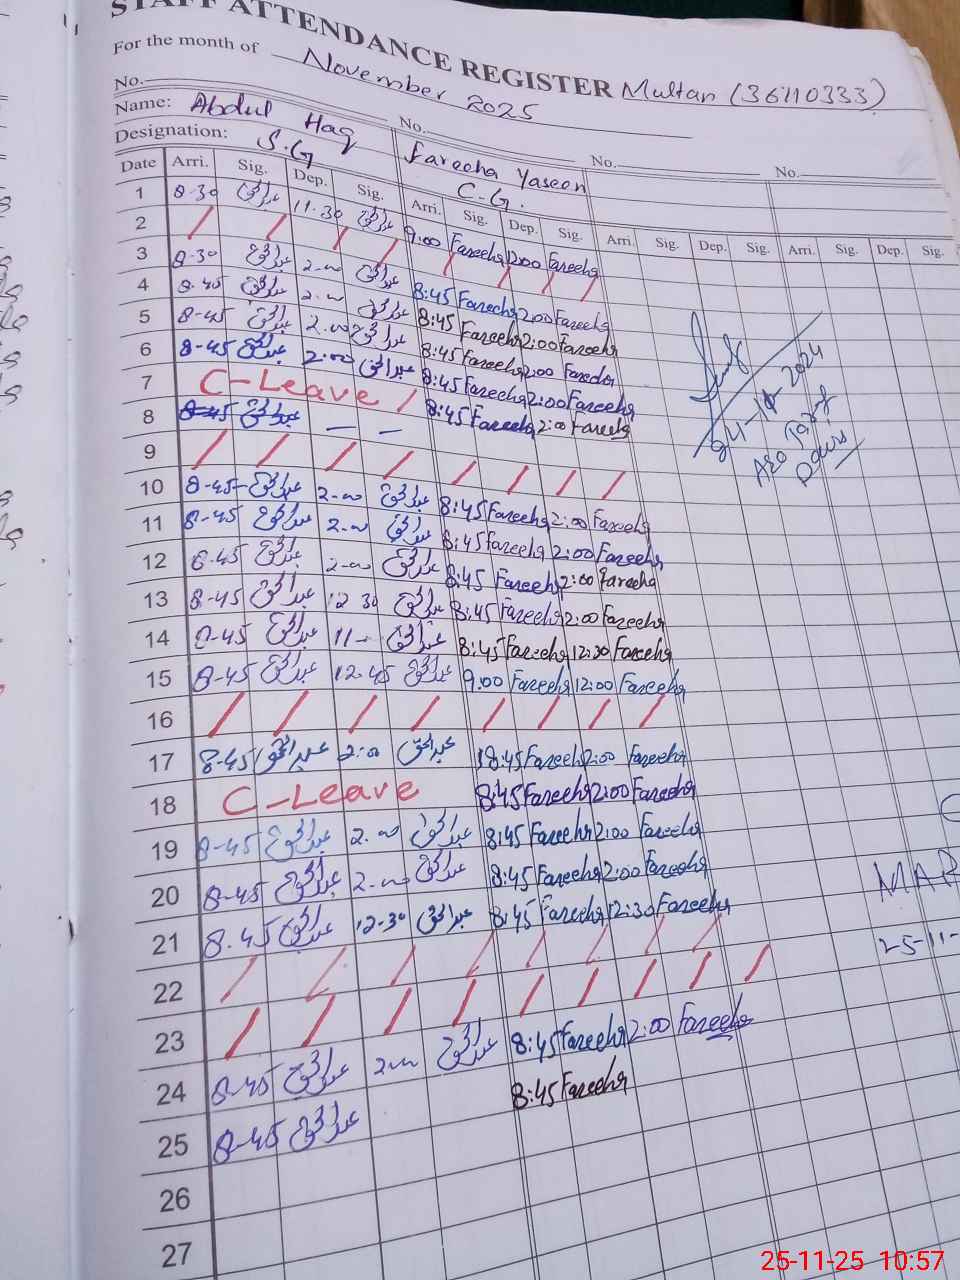 STAFF ATTENDANCE REGISTER Multan (36110333)
For the month of November 2025
No. No. No. No.
Name: Abdul Haq Fareeha Yaseen
Designation: S.G C-G.
Date Arri. Sig. Dep. Sig. Arri. Sig. Dep. Sig. Arri. Sig. Dep. Sig. Arri. Sig. Dep. Sig.
1 8-30 عبدالحق 11-30 عبدالحق 9.00 Fareeha 2:00 Fareeha
2 / / / / / / / /
3 8-30 عبدالحق 2-00 عبدالحق 8:45 Fareeha 2:00 Fareeha
4 8-45 عبدالحق 2-00 عبدالحق 8:45 Fareeha 2:00 Fareeha
5 8-45 عبدالحق 2-00 عبدالحق 8:45 Fareeha 2:00 Fareeha
6 8-45 عبدالحق 2:00 عبدالحق 8:45 Fareeha 2:00 Fareeha
7 C-Leave / 8:45 Fareeha 2:00 Fareeha
8 8-45 عبدالحق — —
9 / / / / / / / /
10 8-45 عبدالحق 2-00 عبدالحق 8:45 Fareeha 2:00 Fareeha
11 8-45 عبدالحق 2-00 عبدالحق 8:45 Fareeha 2:00 Fareeha
12 8.45 عبدالحق 2-00 عبدالحق 8:45 Fareeha 2:00 Fareeha
13 8-45 عبدالحق 12 30 عبدالحق 8:45 Fareeha 2:00 Fareeha
14 8-45 عبدالحق 11- عبدالحق 8:45 Fareeha 12:30 Fareeha
15 8-45 عبدالحق 12-45 عبدالحق 9.00 Fareeha 12:00 Fareeha
16 / / / / / / / /
17 8-45 عبدالحق 2:00 عبدالحق 8:45 Fareeha 2:00 Fareeha
18 C-Leave 8:45 Fareeha 2:00 Fareeha
19 8-45 عبدالحق 2.00 عبدالحق 8:45 Fareeha 2:00 Fareeha
20 8-45 عبدالحق 2-00 عبدالحق 8:45 Fareeha 2:00 Fareeha
21 8.45 عبدالحق 12-30 عبدالحق 8:45 Fareeha 12:30 Fareeha
22 / / / / / / / /
23 / / / / / / / / /
24 8-45 عبدالحق 2-00 عبدالحق 8:45 Fareeha 2:00 Fareeha
25 8-45 عبدالحق 8:45 Fareeha
26
27
2024
MAR
25-11-
25-11-25 10:57